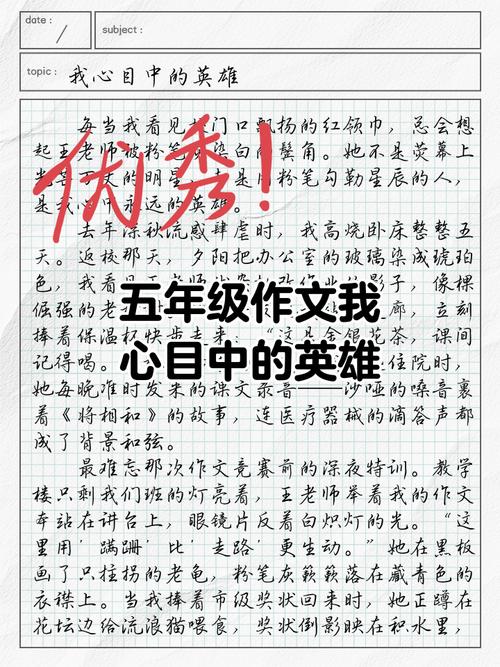 date :
subject :
topic : 我心目中的英雄
每当我看见校门口飘扬的红领巾，总会想
起王老师被粉笔 染白的鬓角。她不是荧幕上
光芒 丈的明星， 是用粉笔勾勒星辰的人，
是我心中永远的英雄。
优秀！
去年深秋流感肆虐时，我高烧卧床整整五
天。返校那天，夕阳把办公室的玻璃染成琥珀
色，我看见王老师 影子，像棵
倔强的老 廊，立刻
五年级作文我
心目中的英雄
捧着保温杯快步走来："这是金银花茶，课间
记得喝。 住院时，
她每晚准时发来的课文录音 沙哑的嗓音裹
着《将相和》的故事，连医疗器械的滴答声都
成了背景和弦。
最难忘那次作文竞赛前的深夜特训。教学
楼只剩我们班的灯亮着，王老师举着我的作文
本站在讲台上，眼镜片反着白炽灯的光。"这
里用'蹒跚'比'走路'更生动。"她在黑板
画了只拄拐的老龟，粉笔灰簌簌落在藏青色的
衣襟上。当我捧着市级奖状回来时，她正蹲在
花坛边给流浪猫喂食，奖状倒影映在积水里，